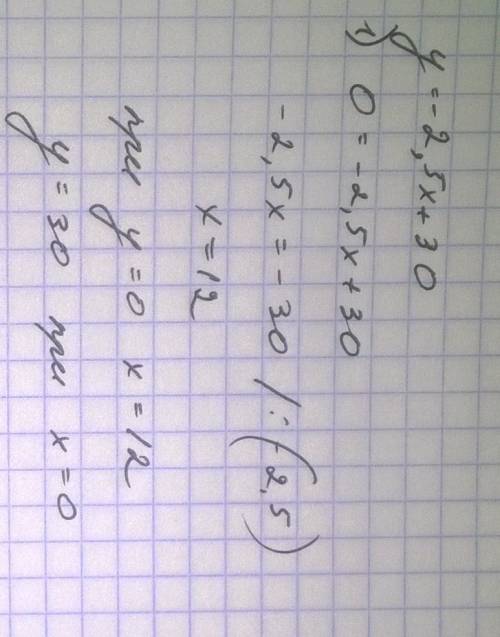 y = -2,5x + 30
1) 0 = -2,5x + 30
-2,5x = -30 /:(-2,5)
x = 12
при y = 0 x = 12
y = 30 при x = 0